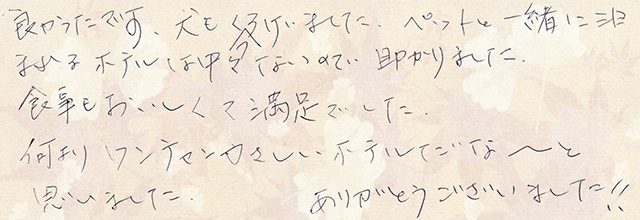 良かったです、犬も くつろげました。ペットと一緒に泊
まれるホテルは中々ないので 助かりました。
食事もおいしくて満足でした。
何より ワンチャンやさしいホテルだな〜と
思いました。 ありがとうございました!!